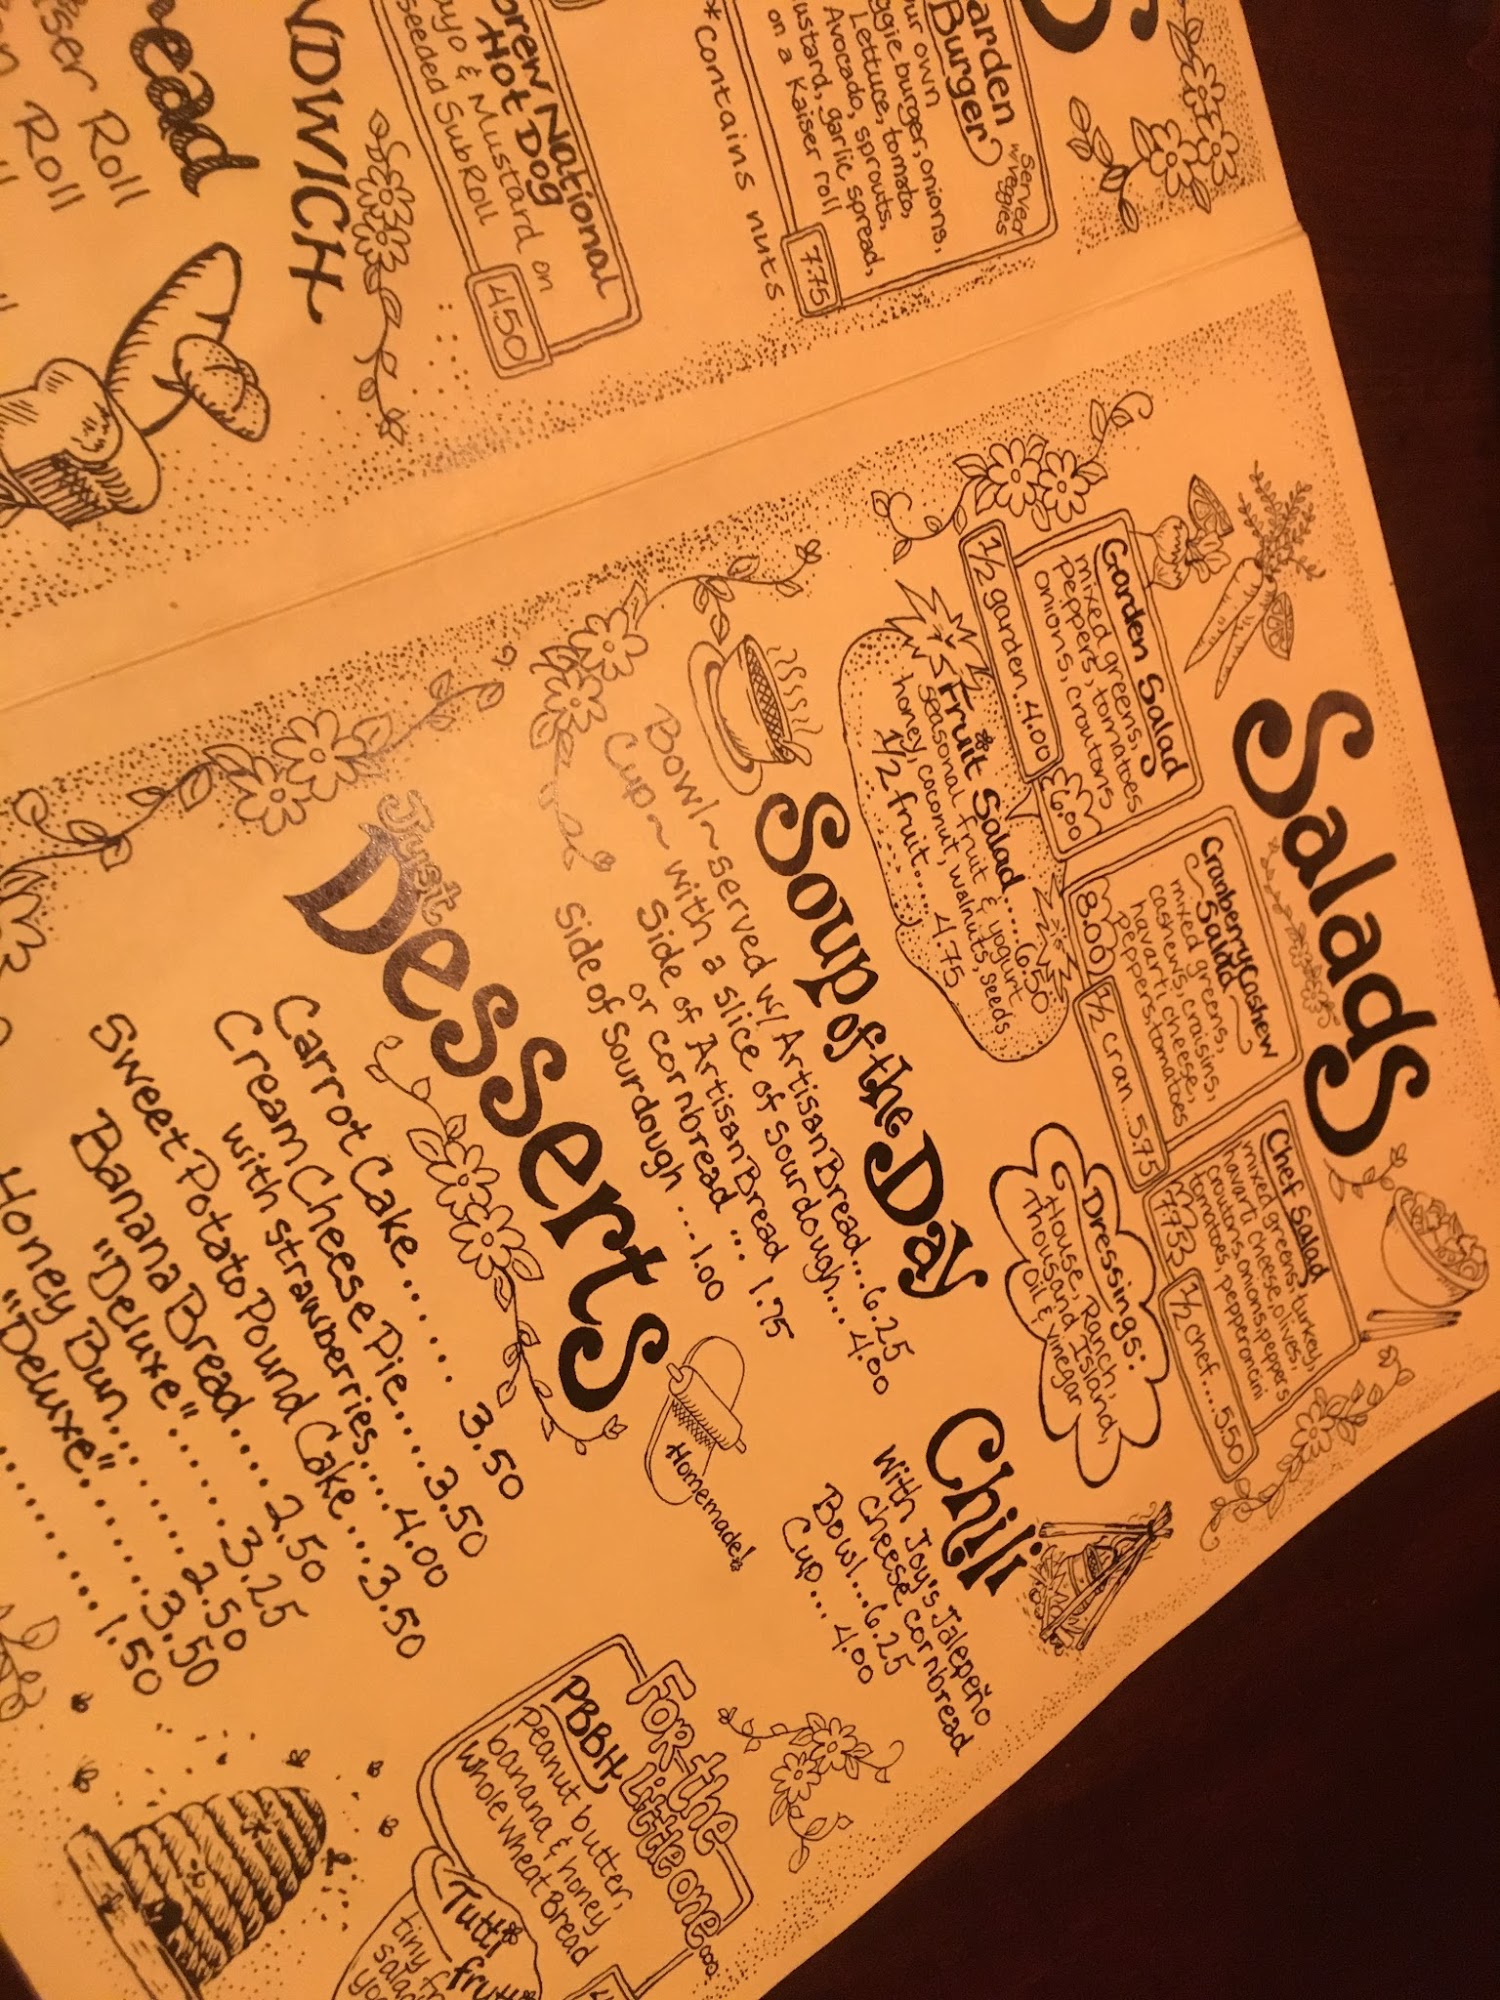 Salads
Garden Salad
mixed greens,
peppers, tomatoes
onions, croutons
6.00
1/2 garden...4.00
Cranberry Cashew
Salad
mixed greens,
cashews, craisins,
havarti cheese,
peppers, tomatoes
8.00
1/2 cran...5.75
Chef Salad
mixed greens, turkey,
havarti cheese, olives,
croutons, onions, peppers
tomatoes, pepperoncini
7.75
1/2 chef....5.50
*Fruit Salad.....6.50
seasonal fruit & yogurt
honey, coconut, walnuts, seeds
1/2 fruit..... 4.75
Dressings:
House, Ranch,
Thousand Island,
Oil & Vinegar
Soup of the Day
Bowl~served w/ Artisan Bread....6.25
Cup~ with a slice of sourdough... 4.00
Side of Artisan Bread
or cornbread ... 1.75
side of Sourdough ....1.00
Chili
With Joy's Jalepeño
Cheese cornbread
Bowl...6.25
Cup... 4.00
Just
Desserts
Homemade!
Carrot Cake....... 3.50
Cream Cheese Pie.....3.50
with strawberries....4.00
Sweet Potato Pound Cake...3.50
Banana Bread..... 2.50
"Deluxe"........3.25
Honey Bun........ 2.50
"Deluxe".........3.50
1.50
For the
Little one...
PBBH
peanut butter,
banana & honey
whole wheat Bread
Tutti*
frutti*
Burger
Served
w/veggies
veggie burger, onions,
Lettuce, tomato,
Avocado, sprouts,
mustard, garlic spread,
on a Kaiser roll
7.75
*Contains nuts
National
Hot Dog
Mayo & Mustard on
seeded Sub Roll
4.50
Roll
Roll